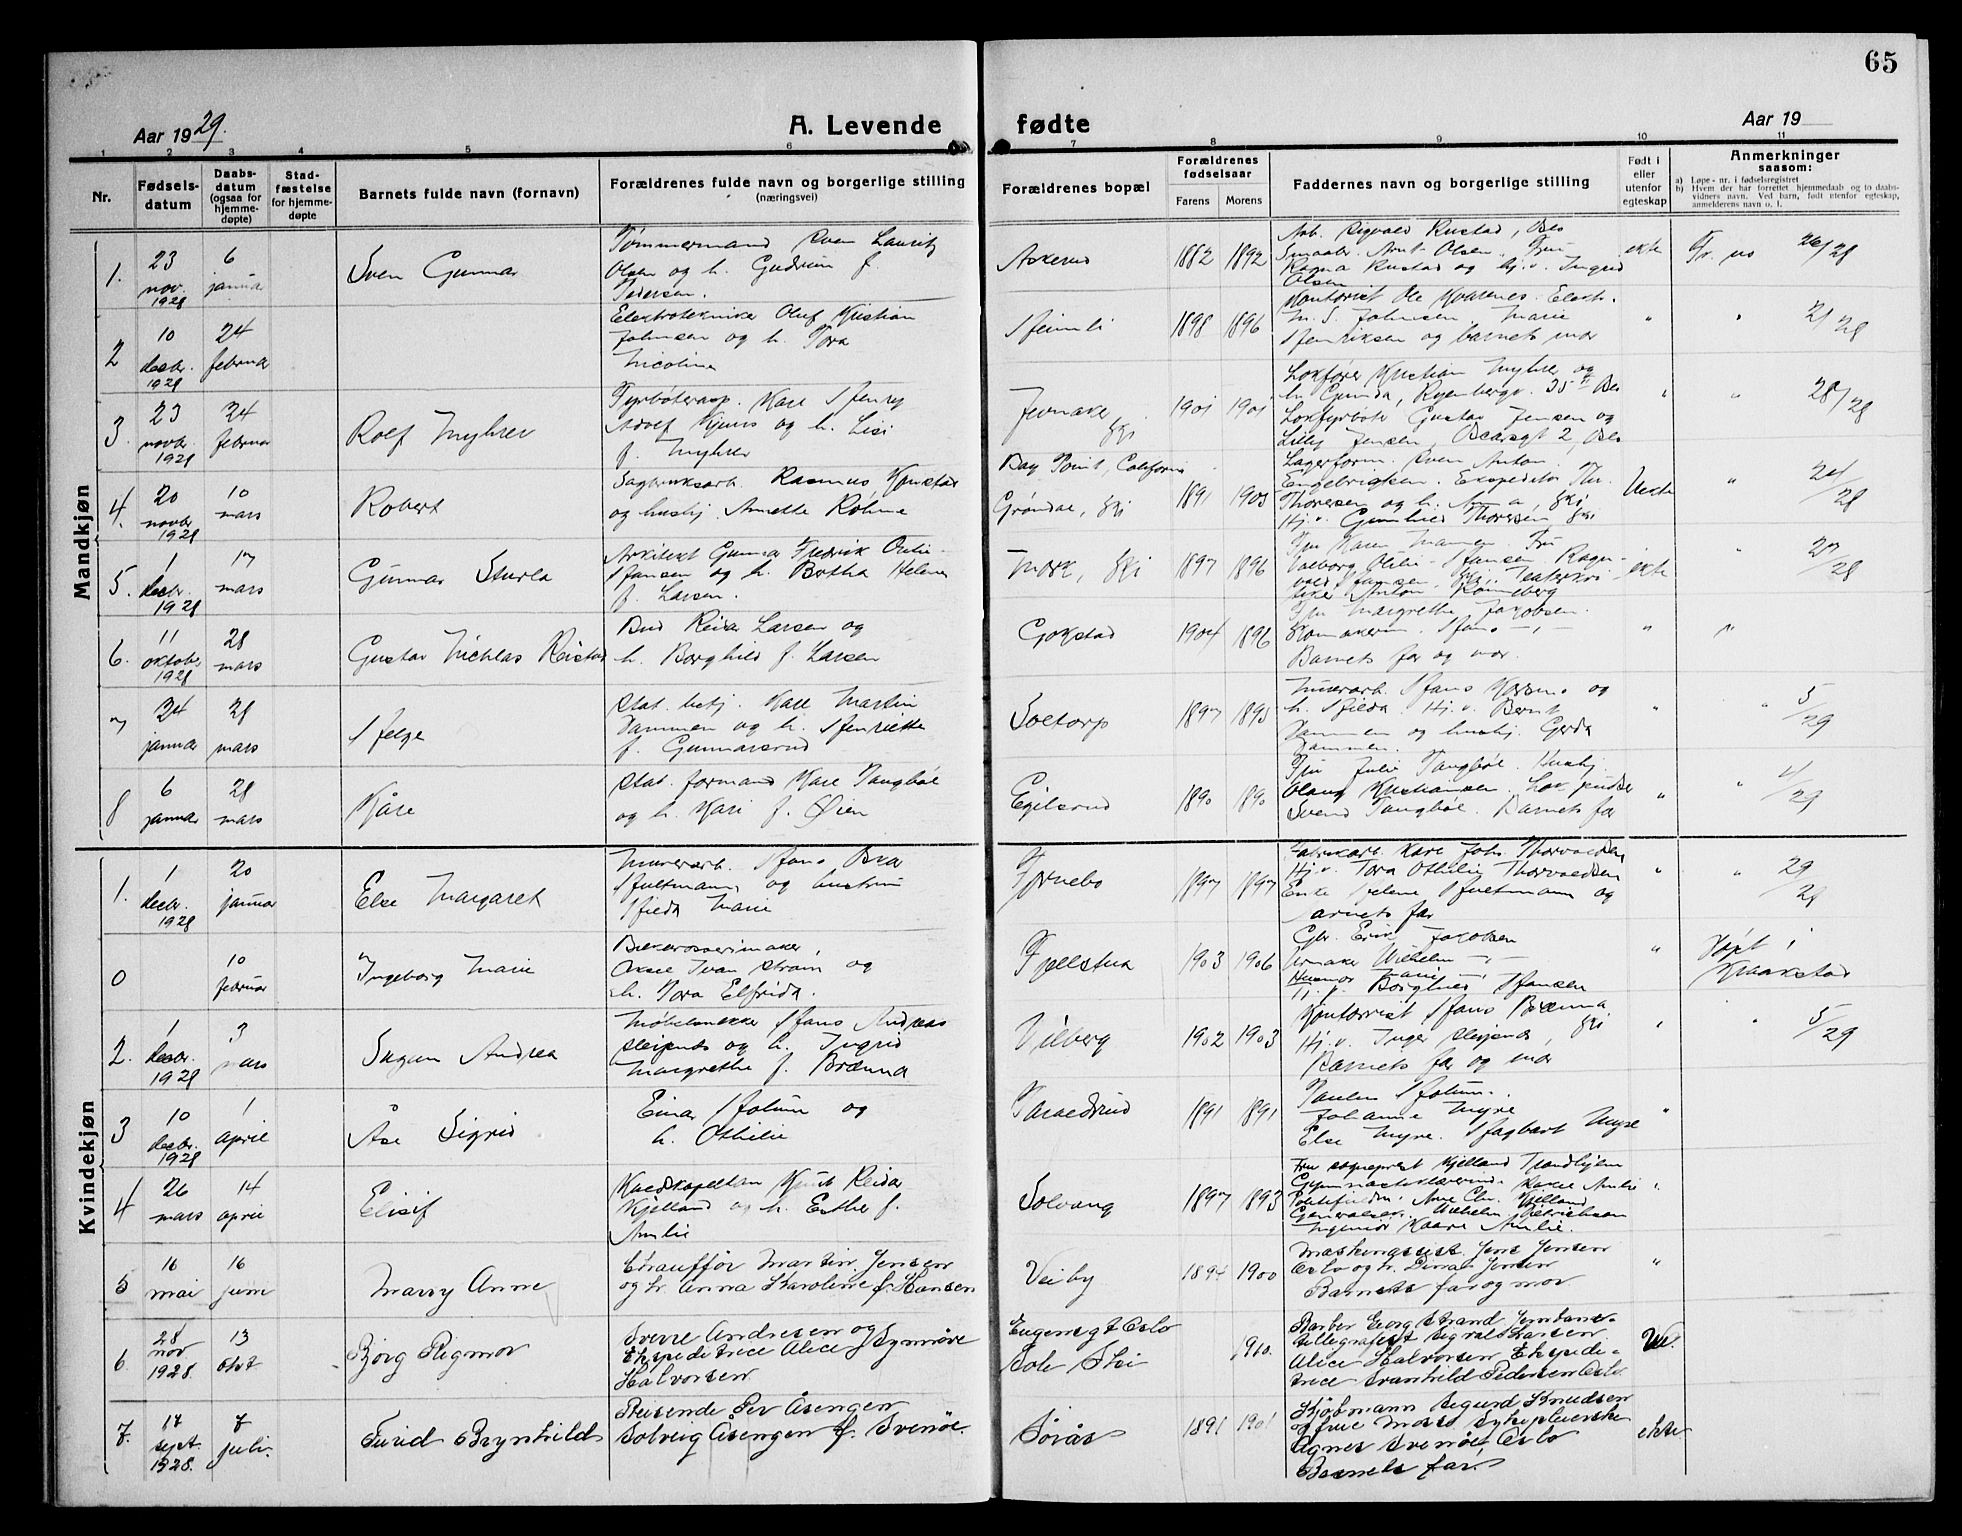 65
Aar 1929.
A. Levende fødte
Aar 19
1 2 3 4 5 6 7 8 9 10 11
Nr.
Fødsels-
datum
Daabs-
datum
(ogsaa for
hjemme-
døpte)
Stad-
fæstelse
for hjemme-
døpte
Barnets fulde navn (fornavn)
Forældrenes fulde navn og borgerlige stilling
(næringsvei)
Forældrenes bopæl
Forældrenes
fødselsaar
Farens Morens
Faddernes navn og borgerlige stilling
Født i
eller
utenfor
egteskap
Anmerkninger
saasom:
a) Løpe-nr. i fødselsregistret
b) Hvem der har forrettet hjemmedaab og to daabs-
vidners navn. Ved barn, født utenfor egteskap,
anmelderens navn o. l.
Mandkjøn
1. 23 nov. 1928 6 januar
Sven Gunnar
Tømmermand Sven Lauritz
Olsen og h. Gudrun f.
Pedersen.
Askerud 1882 1892
Arb. Sigvald Rustad, Oslo
Smaabr. Arnt Olsen. Fru
Ragna Rustad og hj.v. Ingrid
Olsen
ekte 26/28
2 10 decbr. 1928 24 februar
Electrotekniker Oluf Kristian
Johnsen og h. Tora
Nicoline
Heimli 1898 1896
Kontorist Ole Kvarenes. Electr.
M. S. Johnsen. Marie
Henriksen og barnets mor
" "
3. 23 novbr. 1928 24 februar
Rolf Myhrer
Fyrbøterasp. Karl Henry
Adolf og h. Lisi
f. Myhrer
Ski 1901 1901
Lokfører Kristian Myhrer og
h. Gunda, Ryenbergv. 35 Oslo
Lokfyrbøter Gustav Jensen og
Lilly Jensen, Oscarsgt 2, Oslo
" " 28/28
4. 20 novbr 1928 10 mars
Robert
Sagbruksarb. Rasmus
og hushj. Annette Røhme
Bay Point, California
Grøndal, Ski 1891 1903
Lagerform. Sven Anton
Engebrigtsen. Ekspeditør Th.
Thoresen og h. Anna, Ski
Hj.v. Gunhild Thoresen, Ski
Uekte "
5. 1 decbr. 1928 17 mars
Gunnar Sturla
Arkitekt Gunnar Fredrik Outie-
Hansen og h. Botha Helene
f. Larsen.
Mork, Ski 1897 1896
ekte " 27/28
6. 11 oktober 1928 28 mars
Gustav Nicklas Reistad
Bud Reidar Larsen og
h. Borghild f. Larsen
Gokstad 1904 1896
Fru Margrethe Jakobsen.
Skomakerm. Hans —"—
Barnets far og mor.
" "
7 24 januar 28 mars
Helge
Stat. betj. Karl Martin
Dammen og h. Henriette
f. Gunnarsrud
Soltorp 1897 1895
og
h. Hilda. Hj.v. Bernt
Dammen og hushj. Gerda
Dammen.
" " 5/29
8 6 januar 28 mars
Kåre
Stat. formand Karl Tangbøl
og h. Kari f. Øien
Egilsrud 1890 1890
Fru Julie Tangbøl. Hushj.
Olaug Kristiansen. Lok.pudser
Svend Tangbøl. Barnets far
" " 4/29
Kvindekjøn
1. 1 decbr. 1928 20 januar
Else Margaret
Murerarb. Hans Oskar
Hultmann og hustru
Hilda Marie
Fornebo 1897 1897
Fabrikarb. Karl Johs. Thorvaldsen
Hj.v. Tora Othilie Thorvaldsen
Enke Helene Hultmann og
barnets far
" " 29/28
0 10 februar
Ingeborg Marie
Aksel Ivar Strøm og
h. Nora Elfrida.
Fjellstua 1903 1906
Gbr. Erik Jacobsen
Urmaker Wilhelm —"—
Husmor Marie —"—
Hj.v. Borghild Hansen
" Døpt i
Kraakstad
2. 1 decbr. 1928 3 mars
Sugun Andrea
Møbelsnekker Hans Andreas
Slepends og h. Ingrid
Margrethe f. Brænna
Vilberg 1902 1903
Kontorist Hans Brænna
Hj.v. Inger Slepends, Ski
Barnets far og mor
" " 5/29
3 10 decbr. 1928 1 april
Åse Sigrid
Einar Holum og
h. Othilie
Taraldrud 1891 1891
Paulen Holum.
Johanne Myre
Else Myre. Hagbart Myre
"
4 26 mars 14 april
Elisif
Kaldskapellan Knut Reidar
Kjelland og h. Esther f.
Amlie
Solvang 1897 1893
Fru sogneprest Kjelland Trondhjem
Gymnastiklærerinde Kaxie Amlie
Politifuldm. Arne Chr. Kjelland
Generalsek. Wilhelm Dietrichson
Ingeniør Kaare Amlie.
"
5 16 mai 16 juni
Marry Anne
Chauffør Martin Jensen
og h. Anna Karoline f. Hansen
Veiby 1894 1900
Maskinassist. Jens Jensen
Oslo og h. Dina Jensen
Barnets far og mor
"
6 28 nov 1928. 13 okt
Bjørg Rigmor
Sverre Andresen og
Ekspeditrice Alice Synnøve
Halvorsen
Eugensgt Oslo
Sole Ski 1910.
Barber Georg Strand Jernbane-
tellegrafist Sigvald Larsen
Alice Halvorsen Ekspedi-
trice Svanhild Pedersen Oslo.
Ue.
7. 17 sept. 1928. 7 juli.
Turid Brynhild
Reisende Per Åsengen
Solveig Åsengen f. Svenøe.
Sørås 1891 1901
Kjøbmann Sigurd Knudsen
og frue Moss Sykepleierske
Agnes Svenøe, Oslo
Barnets far.
ekte